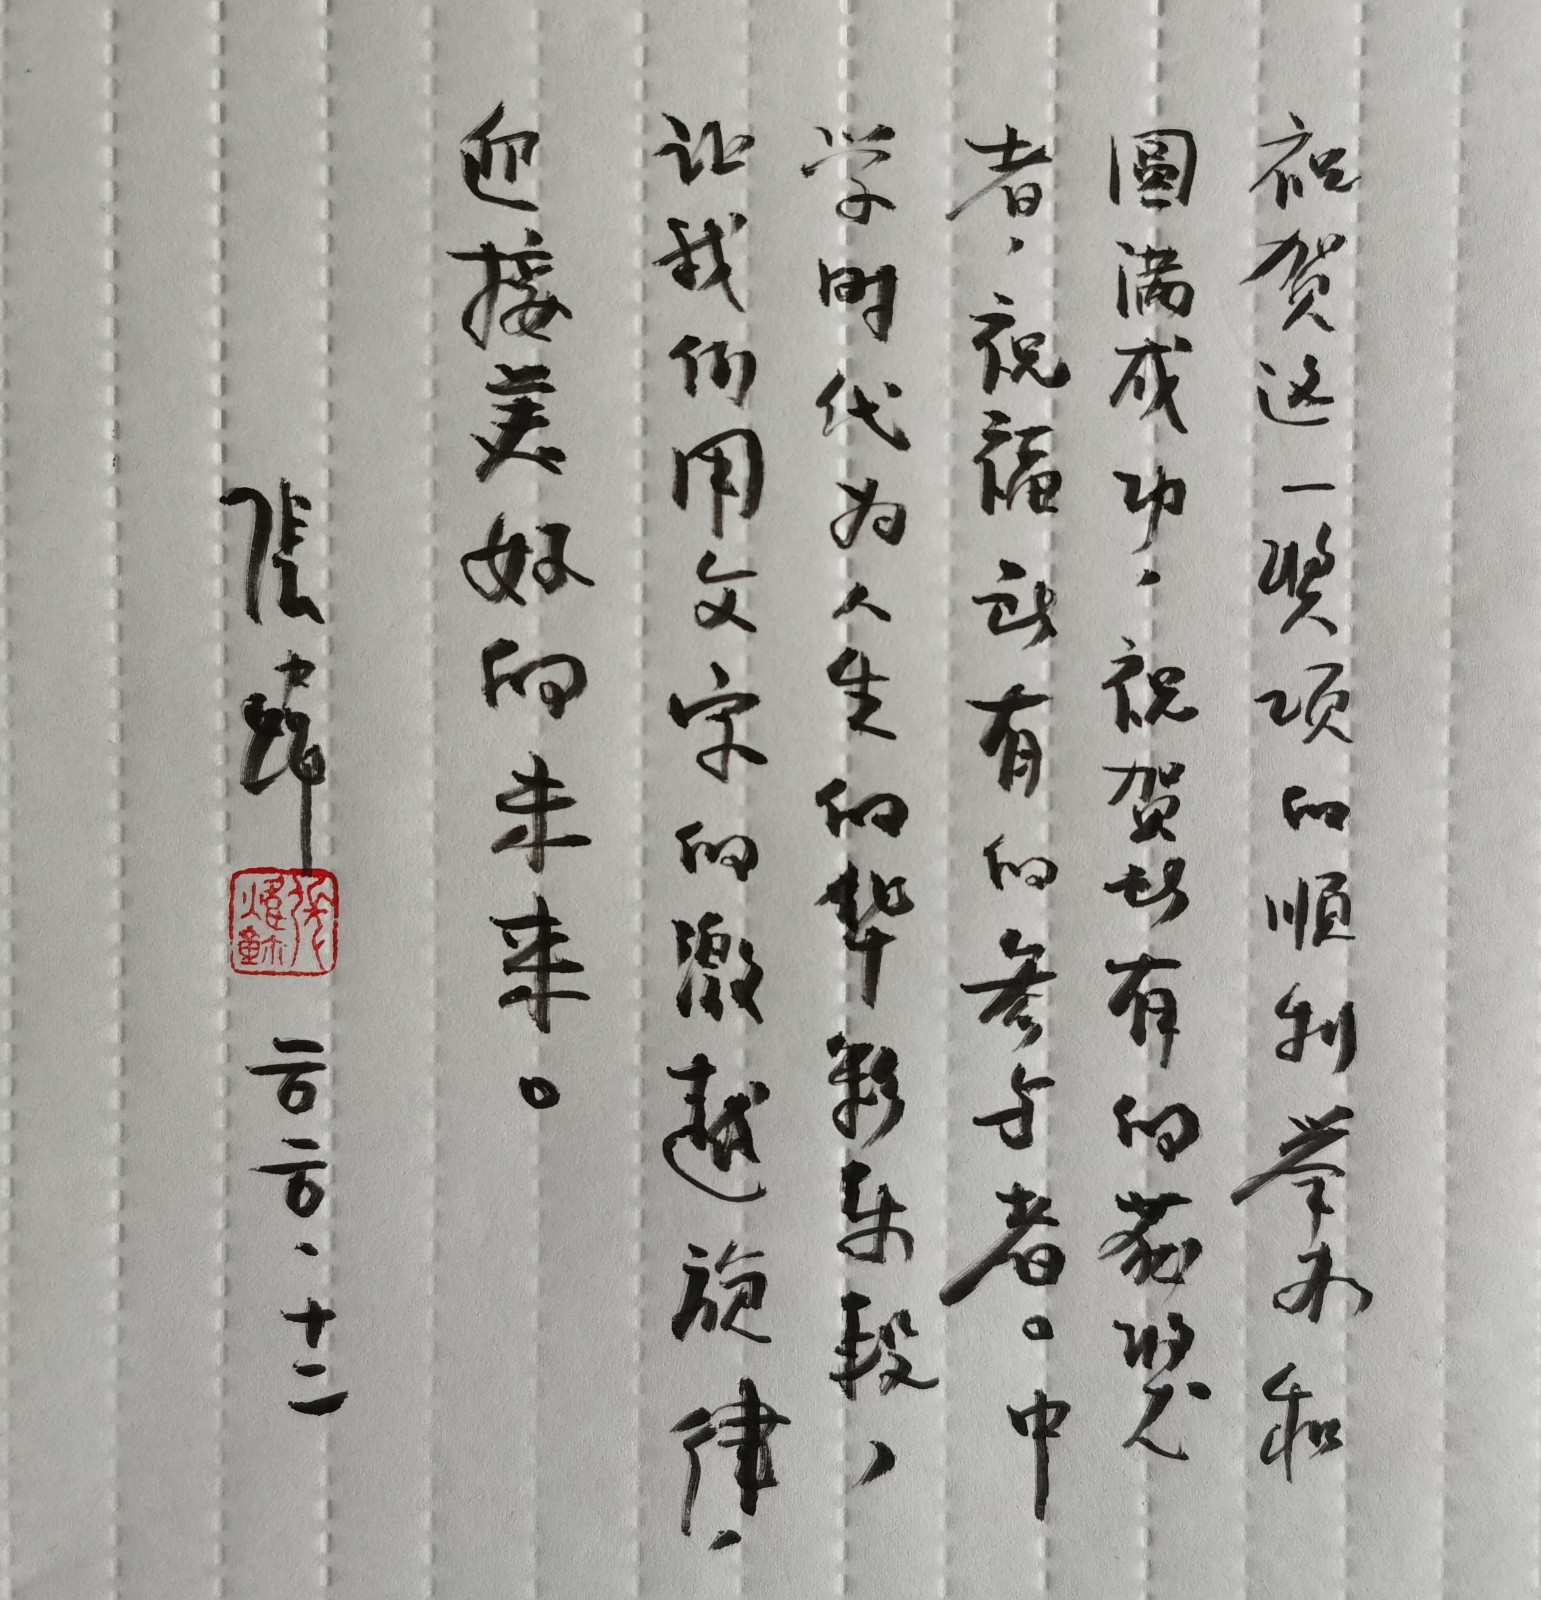 祝贺这一奖项的顺利举办和
圆满成功，祝贺所有的获奖
者，祝福所有的参与者。中
学时代为人生的华彩乐段，
让我们用文字的激越旋律，
迎接美好的未来。
张炜
二〇二〇.十二